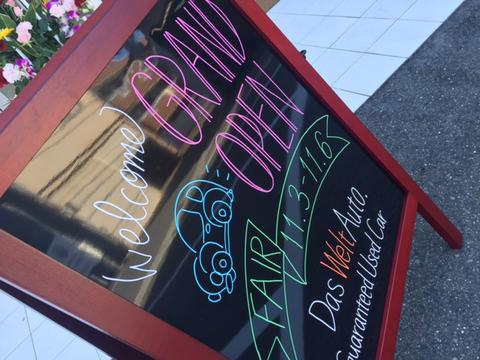 Welcome
GRAND
OPEN
FAIR 11.3-11.6
Das Welt Auto.
Guaranteed Used Car